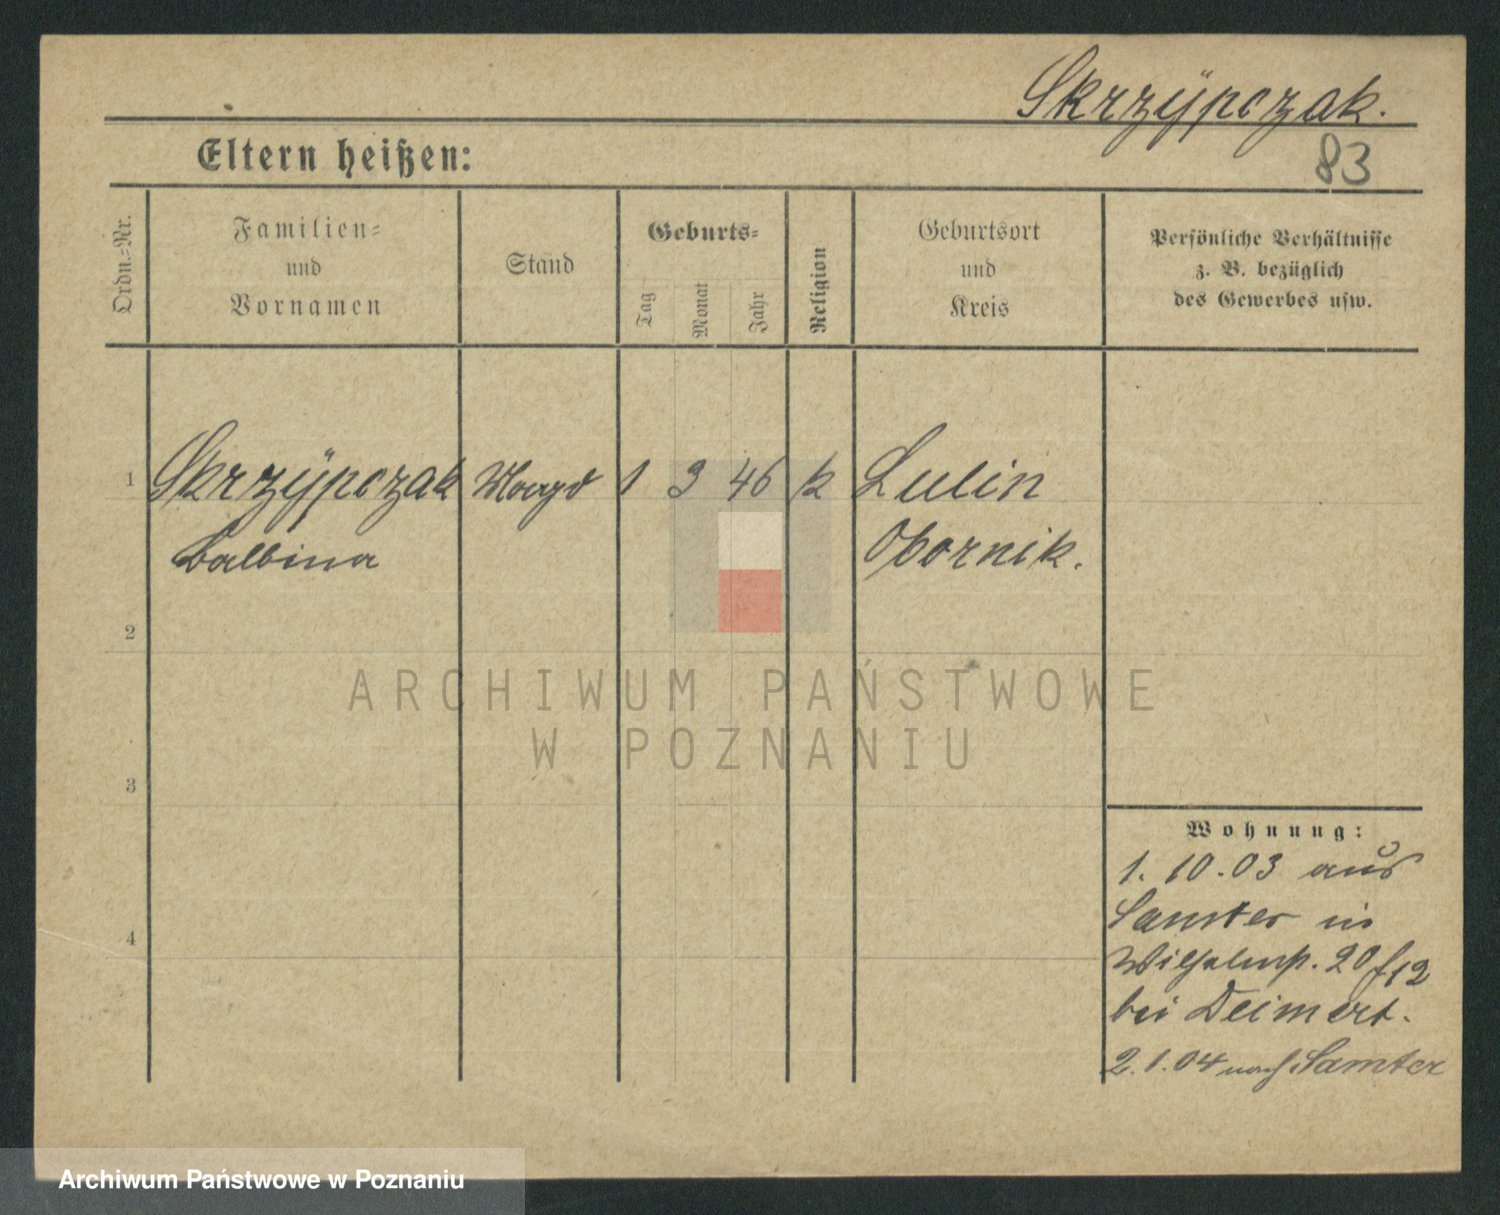 Skrzÿpczak.
Eltern heißen:
83
Ordn.-Nr.
Familien-
und
Vornamen
Stand
Geburts-
Tag
Monat
Jahr
Religion
Geburtsort
und
Kreis
Persönliche Verhältnisse
z. B. bezüglich
des Gewerbes usw.
1 Skrzÿpczak Magd 1 3 46 k Lulin
Balbina Obornik.
2
ARCHIWUM PAŃSTWOWE
W POZNANIU
3
Wohnung:
1. 10. 03 aus
Samter in
4
Wilhelmp. 20 f12
bei Deimert.
2. 1. 04 nach Samter
Archiwum Państwowe w Poznaniu